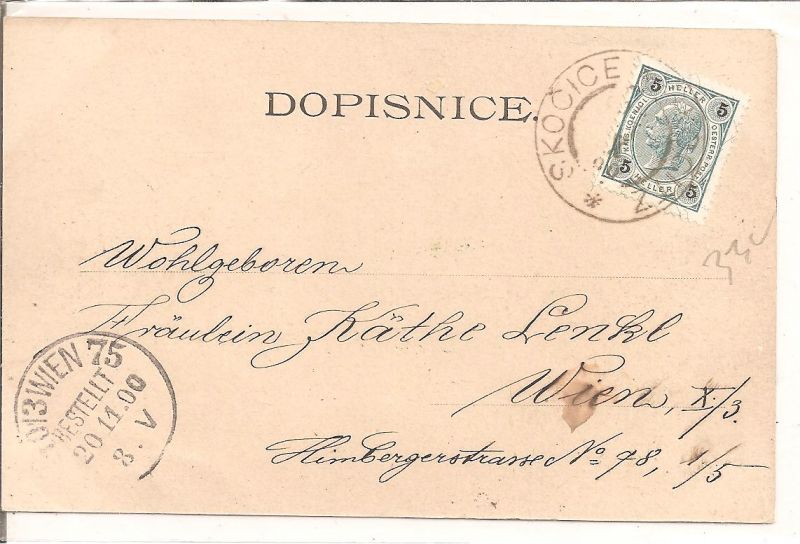 DOPISNICE.
SKOČICE
5 HELLER 5
KAIS. KOENIGL. OESTERR. POST
5 HELLER 5
Wohlgeboren
Fräulein Käthe Lenkl
Wien, X/3.
Himbergerstrasse No 78, 1/5
WIEN 75
BESTELLT
20.11.00
8. V